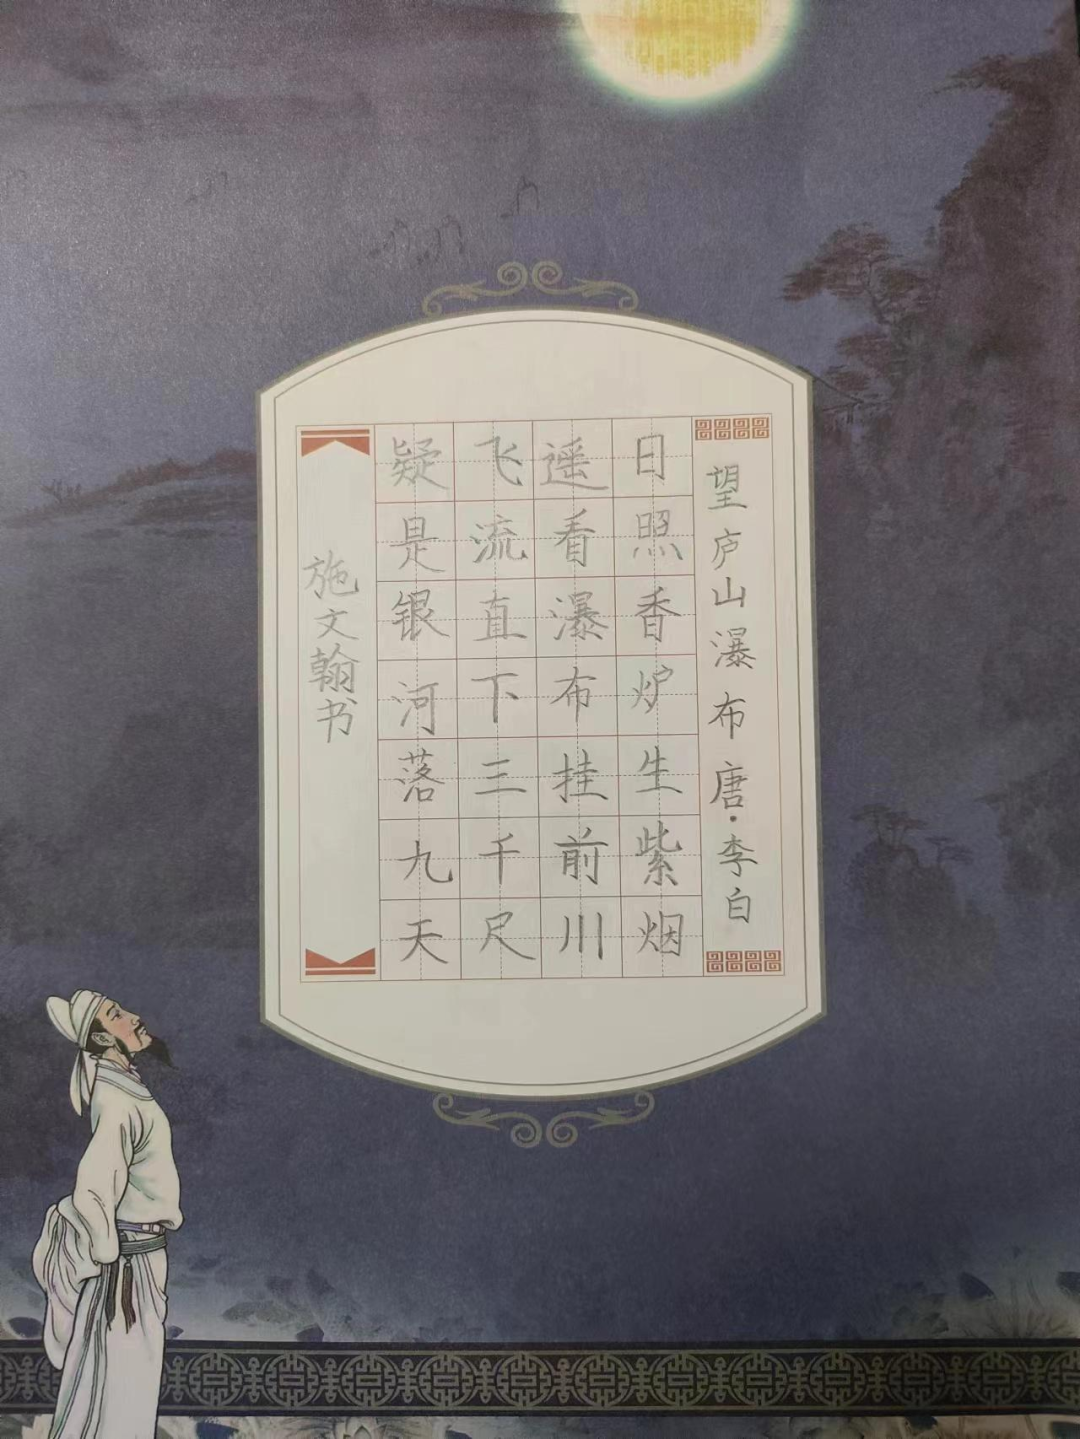 望庐山瀑布 唐·李白
日照香炉生紫烟
遥看瀑布挂前川
飞流直下三千尺
疑是银河落九天
施文翰书